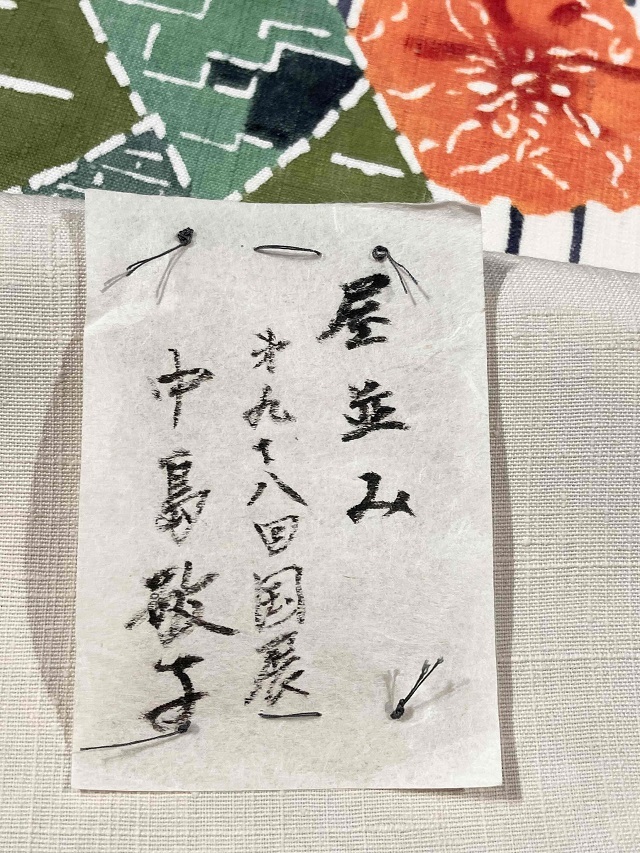 屋並み
第九十八回国展
中島敬子